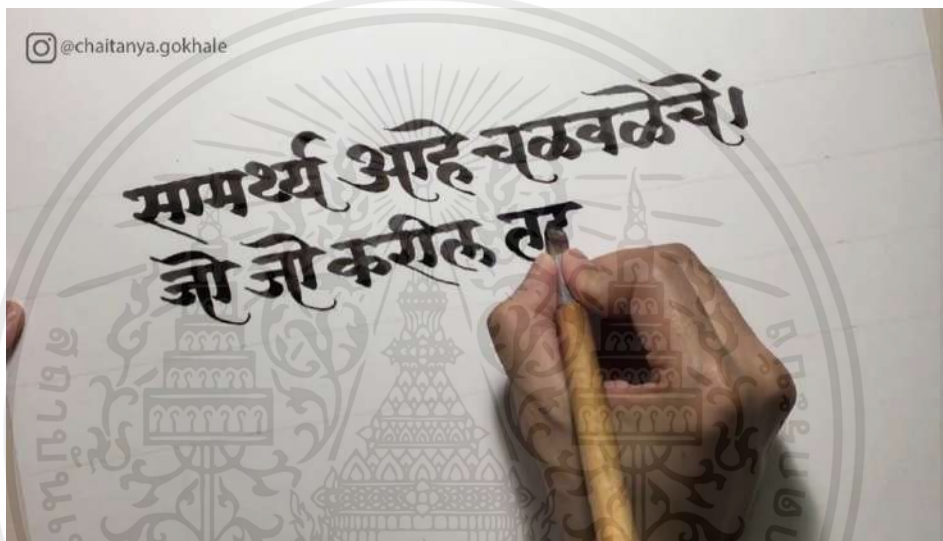 @chaitanya.gokhale
सामर्थ्य आहे चळवळेचें।
जो जो करील